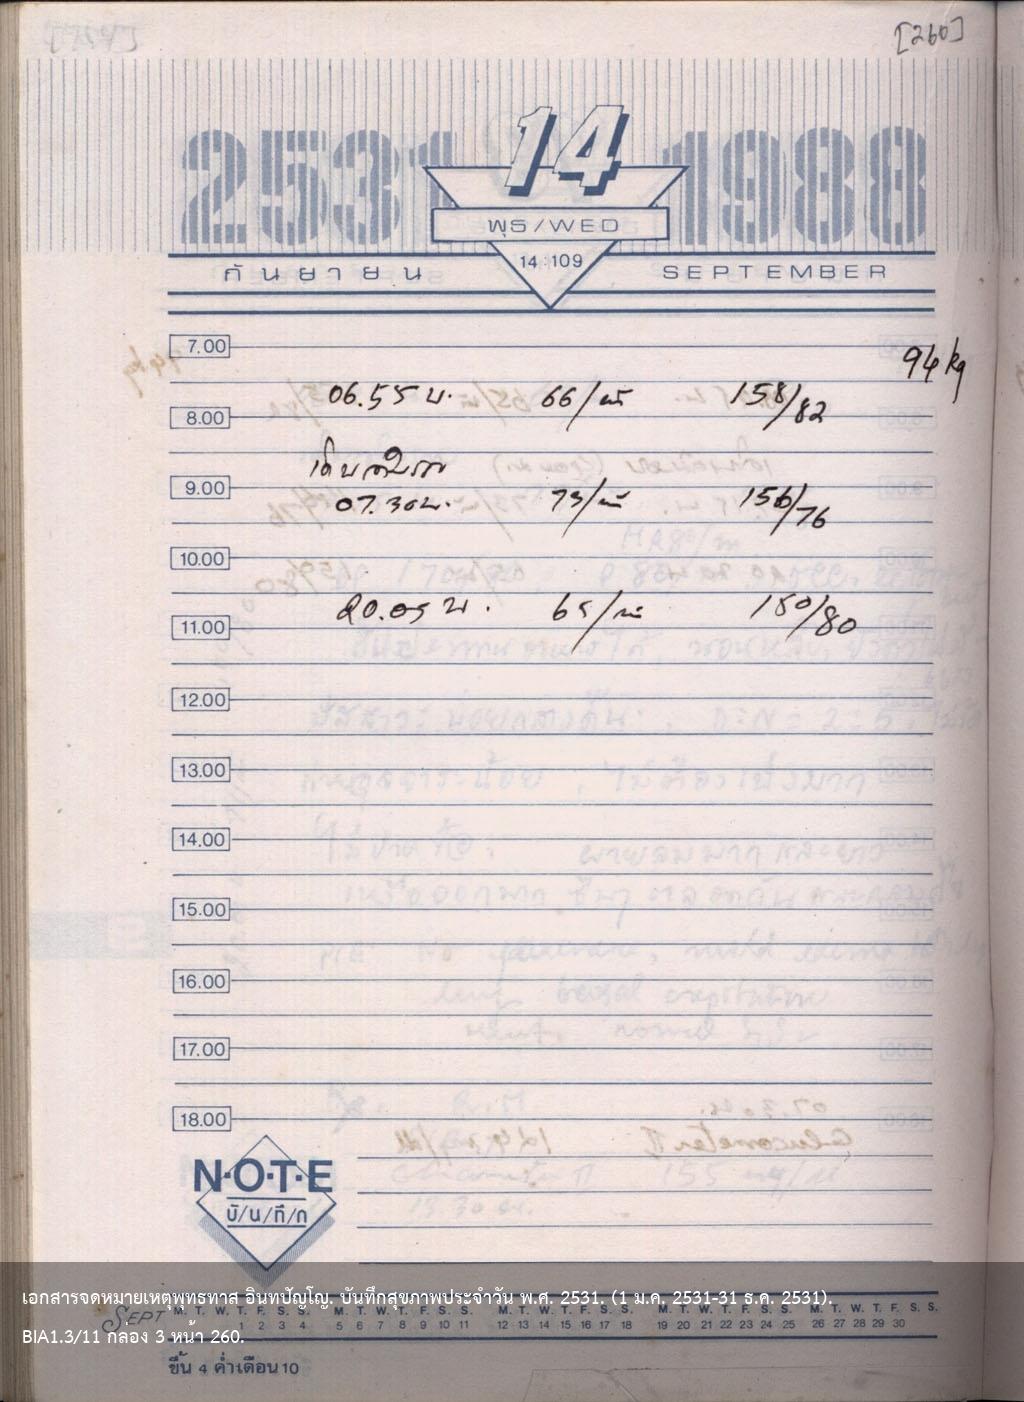 [260]
2531 1988
14
พุธ/WED
14:109
กันยายน SEPTEMBER
94 kg
7.00
06.55 น. 66/นที 158/82
8.00
9.00
07.30น. 73/นที 156/76
10.00
20.05 น. 65/นที 150/80
11.00
12.00
13.00
14.00
15.00
16.00
17.00
18.00
N·O·T·E
บั/น/ทึ/ก
เอกสารจดหมายเหตุพุทธทาส อินทปัญโญ. บันทึกสุขภาพประจำวัน พ.ศ. 2531. (1 ม.ค. 2531-31 ธ.ค. 2531).
SEPT M. T. W. T. F. S. S. M. T. W. T. F. S. S. M. T. W. T. F. S. S. M. T. W. T. F. S. S. M. T. W. T. F. S. S.
1 2 3 4 5 6 7 8 9 10 11 12 13 14 15 16 17 18 19 20 21 22 23 24 25 26 27 28 29 30
BIA1.3/11 กล่อง 3 หน้า 260.
ขึ้น 4 ค่ำเดือน 10